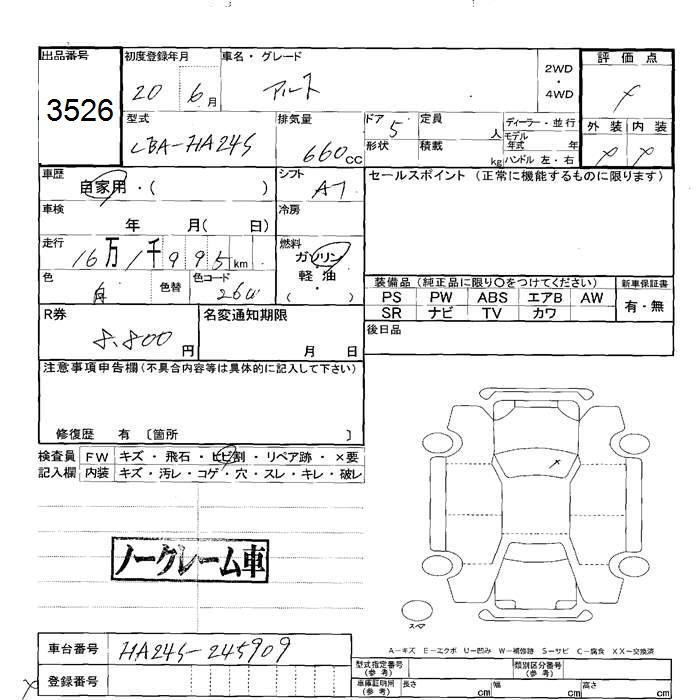 出品番号 初度登録年月 車名・グレード 2WD・4WD 評価点
3526 20 6月 アルト
型式 排気量 ドア 5 定員 人 ディーラー・並行 外装 内装
モデル年式 年
LBA-HA24S 660cc 形状 積載 kg ハンドル 左・右
車歴 自家用・( ) シフト AT セールスポイント (正常に機能するものに限ります)
車検 年 月( 日) 冷房
走行 16万1千995km 燃料 ガソリン
軽・油
( )
色 白 色替 色コード 26U 装備品 (純正品に限り〇をつけてください) 新車保証書
PS PW ABS エアB AW 有・無
SR ナビ TV カワ
R券 8.800円 名変通知期限 月 日 後日品
注意事項申告欄(不具合内容等は具体的に記入して下さい)
修復歴 有 〔箇所 〕
検査員 FW キズ・飛石・ヒビ割・リペア跡・×要
記入欄 内装 キズ・汚レ・コゲ・穴・スレ・キレ・破レ
ノークレーム車
スペア
A-キズ E-エクボ U-凹み W-補修跡 S-サビ C-腐食 XX-交換済
車台番号 HA24S-245909 型式指定番号(参考) 類別区分番号(参考)
登録番号 車庫証明用(参考) 長さ cm 幅 cm 高さ cm